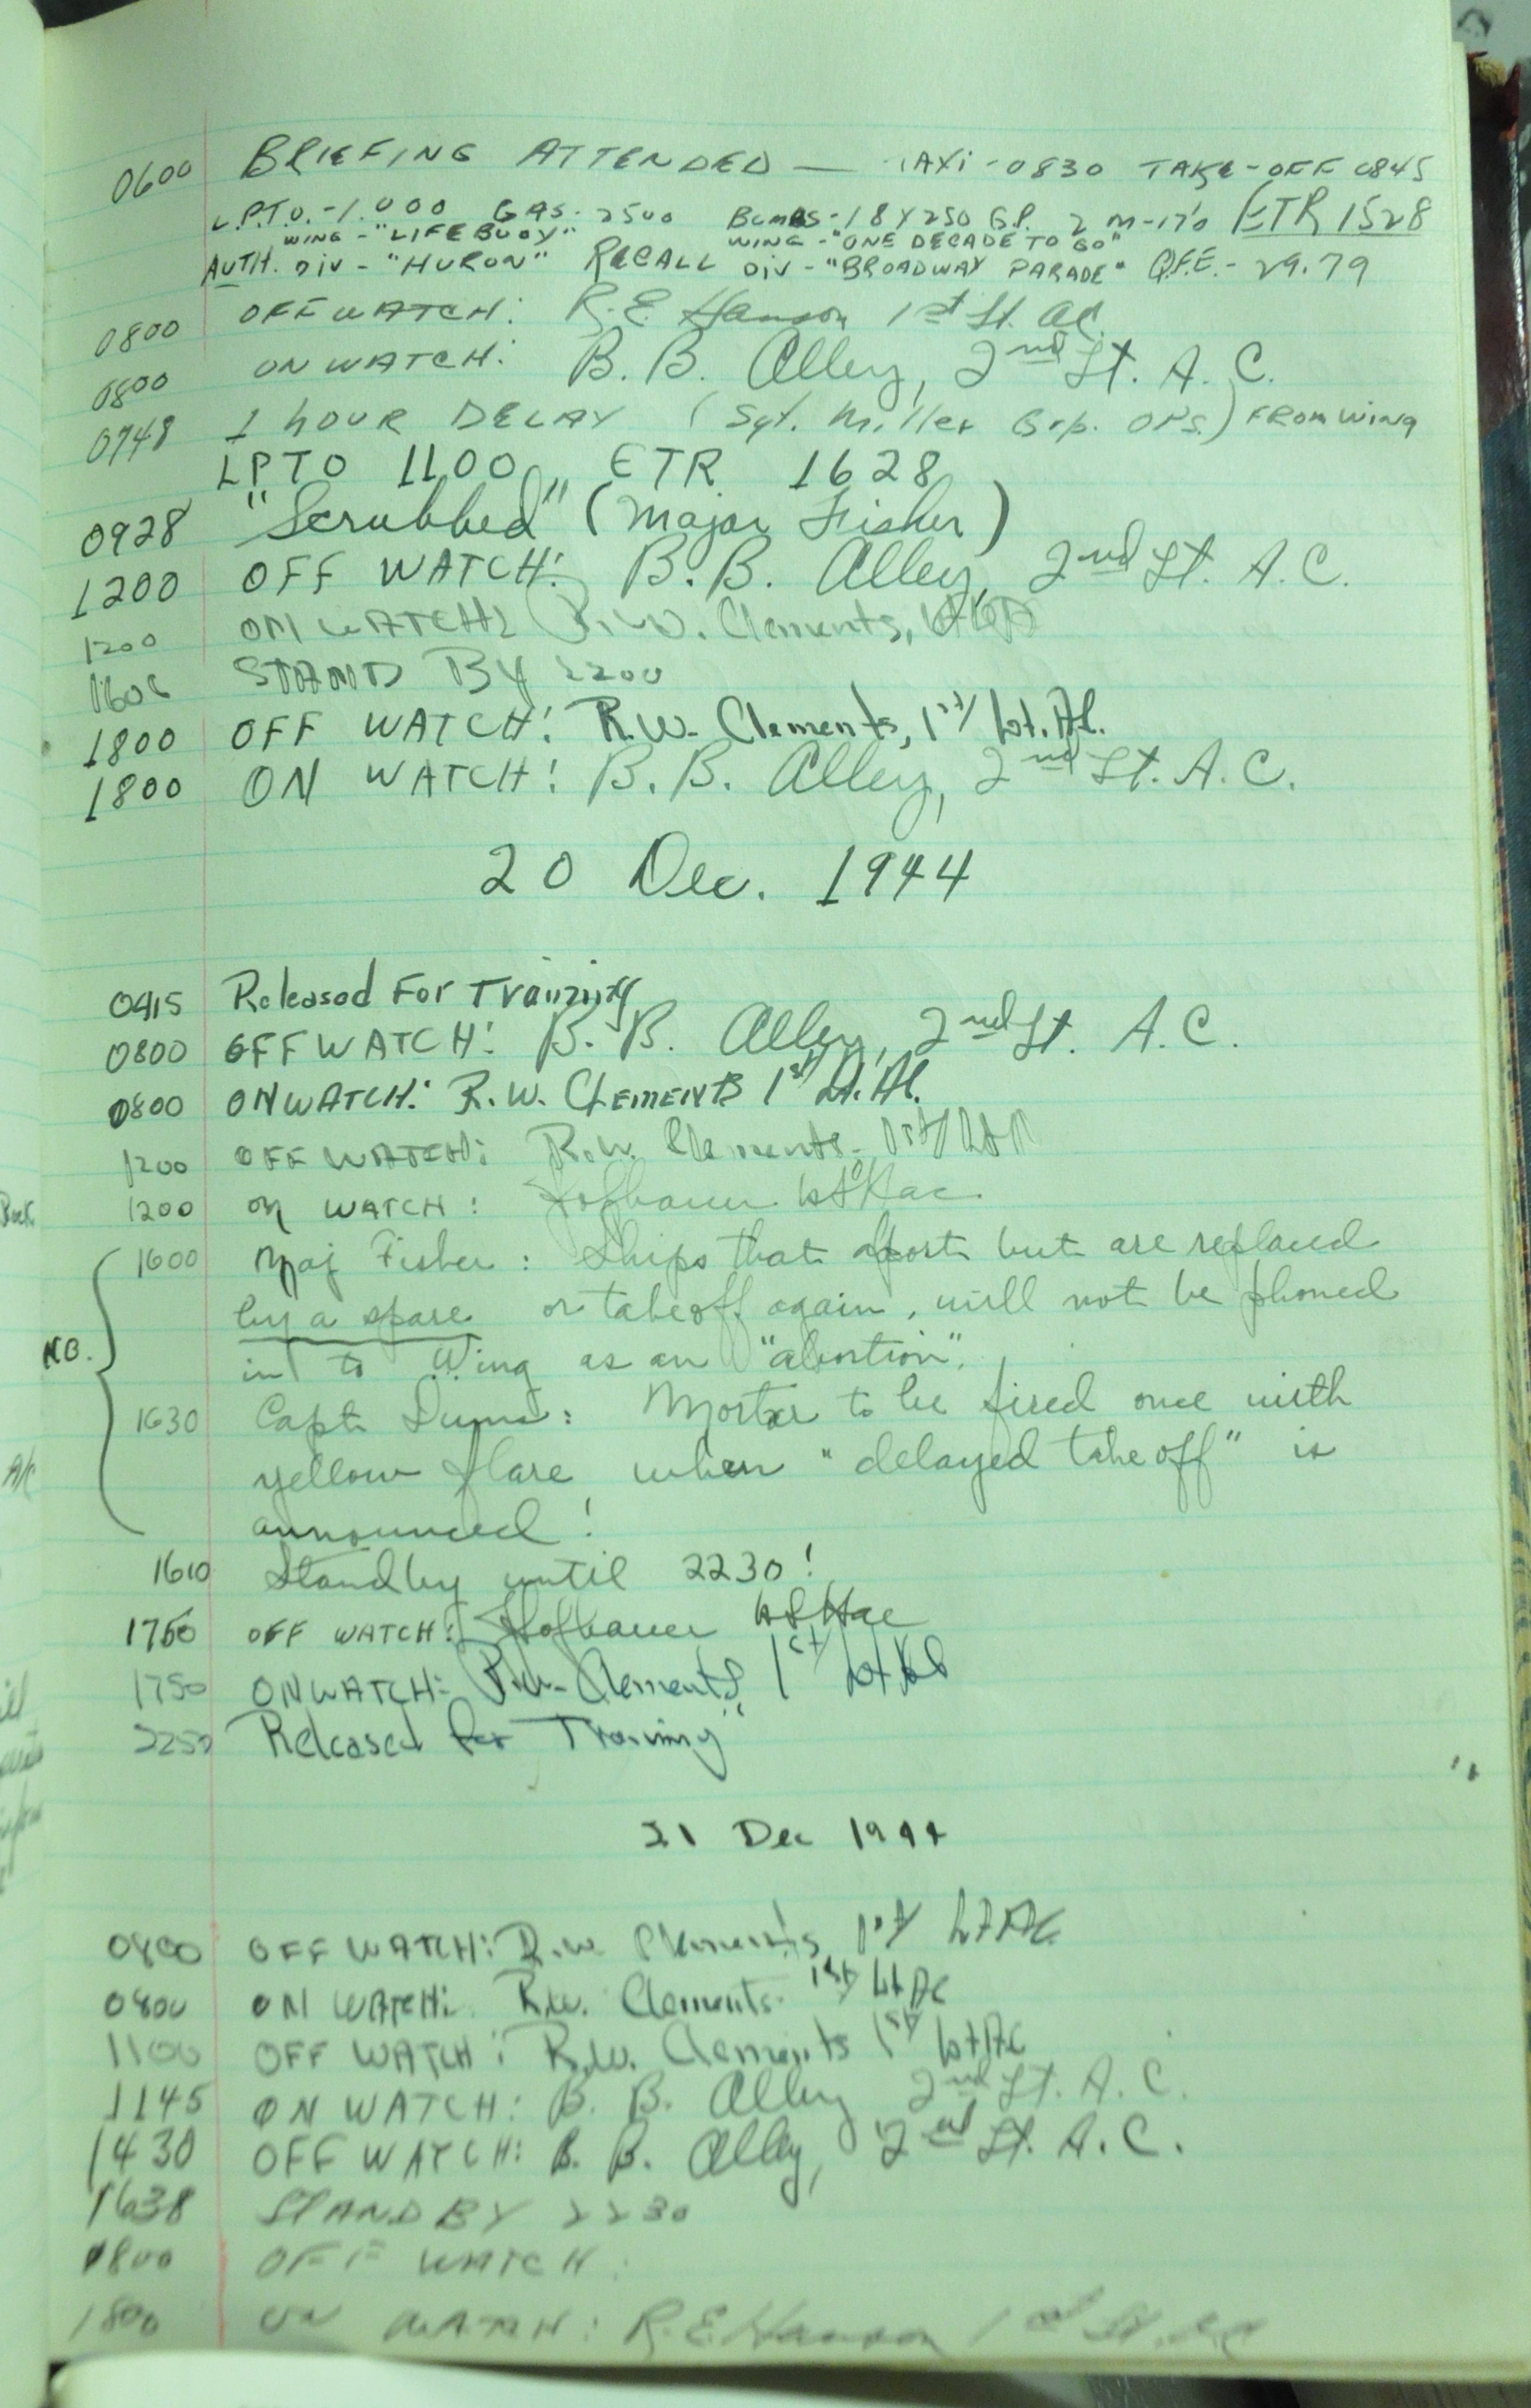 0600 BRIEFING ATTENDED — TAXI - 0830 TAKE-OFF 0845
L.P.T.O. - 1000 GAS - 2500 BOMBS - 18 X 250 G.P. 2 M-17's ETR 1528
WING - "LIFE BUOY" WING - "ONE DECADE TO GO"
AUTH. DIV - "HURON" RECALL DIV - "BROADWAY PARADE" Q.F.E. - 29.79
0800 OFF WATCH: R.E. Hanson 1st Lt. AC.
0800 ON WATCH: B. B. Alley, 2nd Lt. A. C.
0748 1 HOUR DELAY (Sgt. Miller Grp. OPS.) FROM WING
LPTO 1100, ETR 1628
0928 "Scrubbed" (Major Fisher)
1200 OFF WATCH: B. B. Alley, 2nd Lt. A. C.
1200 ON WATCH: R.W. Clements,
1606 STAND BY 2200
1800 OFF WATCH: R.W. Clements, 1st Lt. AC.
1800 ON WATCH: B. B. Alley, 2nd Lt. A. C.
20 Dec. 1944
0415 Released For Training
0800 OFF WATCH: B. B. Alley, 2nd Lt. A. C.
0800 ON WATCH: R.W. CLEMENTS 1st Lt. AC.
1200 OFF WATCH: R.W. Clements - 1st Lt
1200 ON WATCH: Hofbauer 1st Lt ac.
1600 Maj Fisher: Ships that abort but are replaced
by a spare or takeoff again, will not be phoned
NB. in to Wing as an "abortion".
1630 Capt : Mortar to be fired once with
yellow flare when "delayed take off" is
announced!
1610 Standby until 2230!
1750 OFF WATCH: Hofbauer 1st Lt ac
1750 ON WATCH: R.W. Clements, 1st Lt AC
2250 Released for Training"
21 Dec 1944
0800 OFF WATCH: R.W. Clements, 1st Lt AC
0800 ON WATCH: R.W. Clements 1st Lt AC
1100 OFF WATCH: R.W. Clements 1st Lt AC
1145 ON WATCH: B. B. Alley 2nd Lt. A. C.
1430 OFF WATCH: B. B. Alley, 2nd Lt. A. C.
1638 STAND BY 2230
1800 OFF WATCH:
1800 ON WATCH: R.E. Hanson 1st Lt. AC